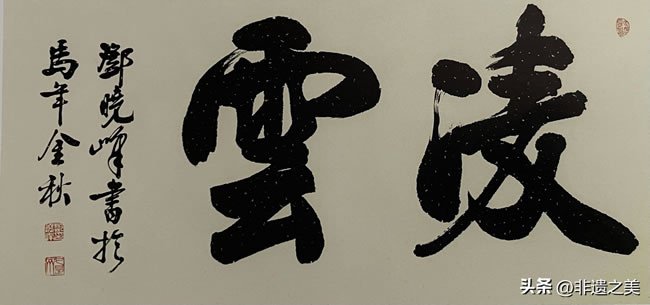 凌雲
鄧曉峰書於
馬年金秋
头条 @非遗之美